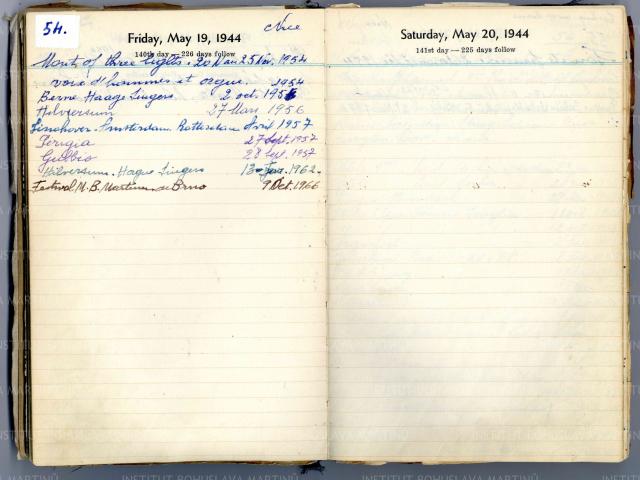 54.
Nice
Friday, May 19, 1944
140th day — 226 days follow
Mont of three Lights. 20 Mai 25 Nov. 1954
voix d'hommes et orgue. 1954
Berne Haage Singers 2 oct. 1956
Hilversum 27 Mars 1956
Eindhoven. Amsterdam Rotterdam Avril 1957
Perugia 27 Sept. 1957
Gubbio 28 Sept. 1957
Hilversum. Hague Singers 13 1962.
Festival M. B. Martinu de Brno 9 Oct. 1966
Saturday, May 20, 1944
141st day — 225 days follow
INSTITUT BOHUSLAVA MARTINŮ